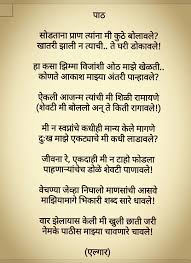 पाठ
सोडताना प्राण त्यांना मी कुठे बोलावले?
खातरी झाली न त्याची.. ते घरी डोकावले!
हा कसा झिम्मा विजांशी ओठ माझे खेळती..
कोणते आकाश माझ्या अंतरी पान्हावले?
ऐकली आजन्म त्यांची मी शिळी रामायणे
(शेवटी मी बोललो अन् ते किती रागावले!)
मी न स्वप्नांचे कधीही मान्य केले मागणे
दुःख माझे एकट्याचे मी कधी लाडावले?
जीवना रे, एकदाही मी न टाहो फोडला
पाहणाऱ्यांचेच डोळे शेवटी पाणावले!
वेचण्या जेव्हा निघालो माणसांची आसवे
माझियामागे भिकारी शब्द सारे धावले!
वार झेलायास केली मी खुली छाती जरी
नेमके पाठीस माझ्या चावणारे चावले!
(एल्गार)